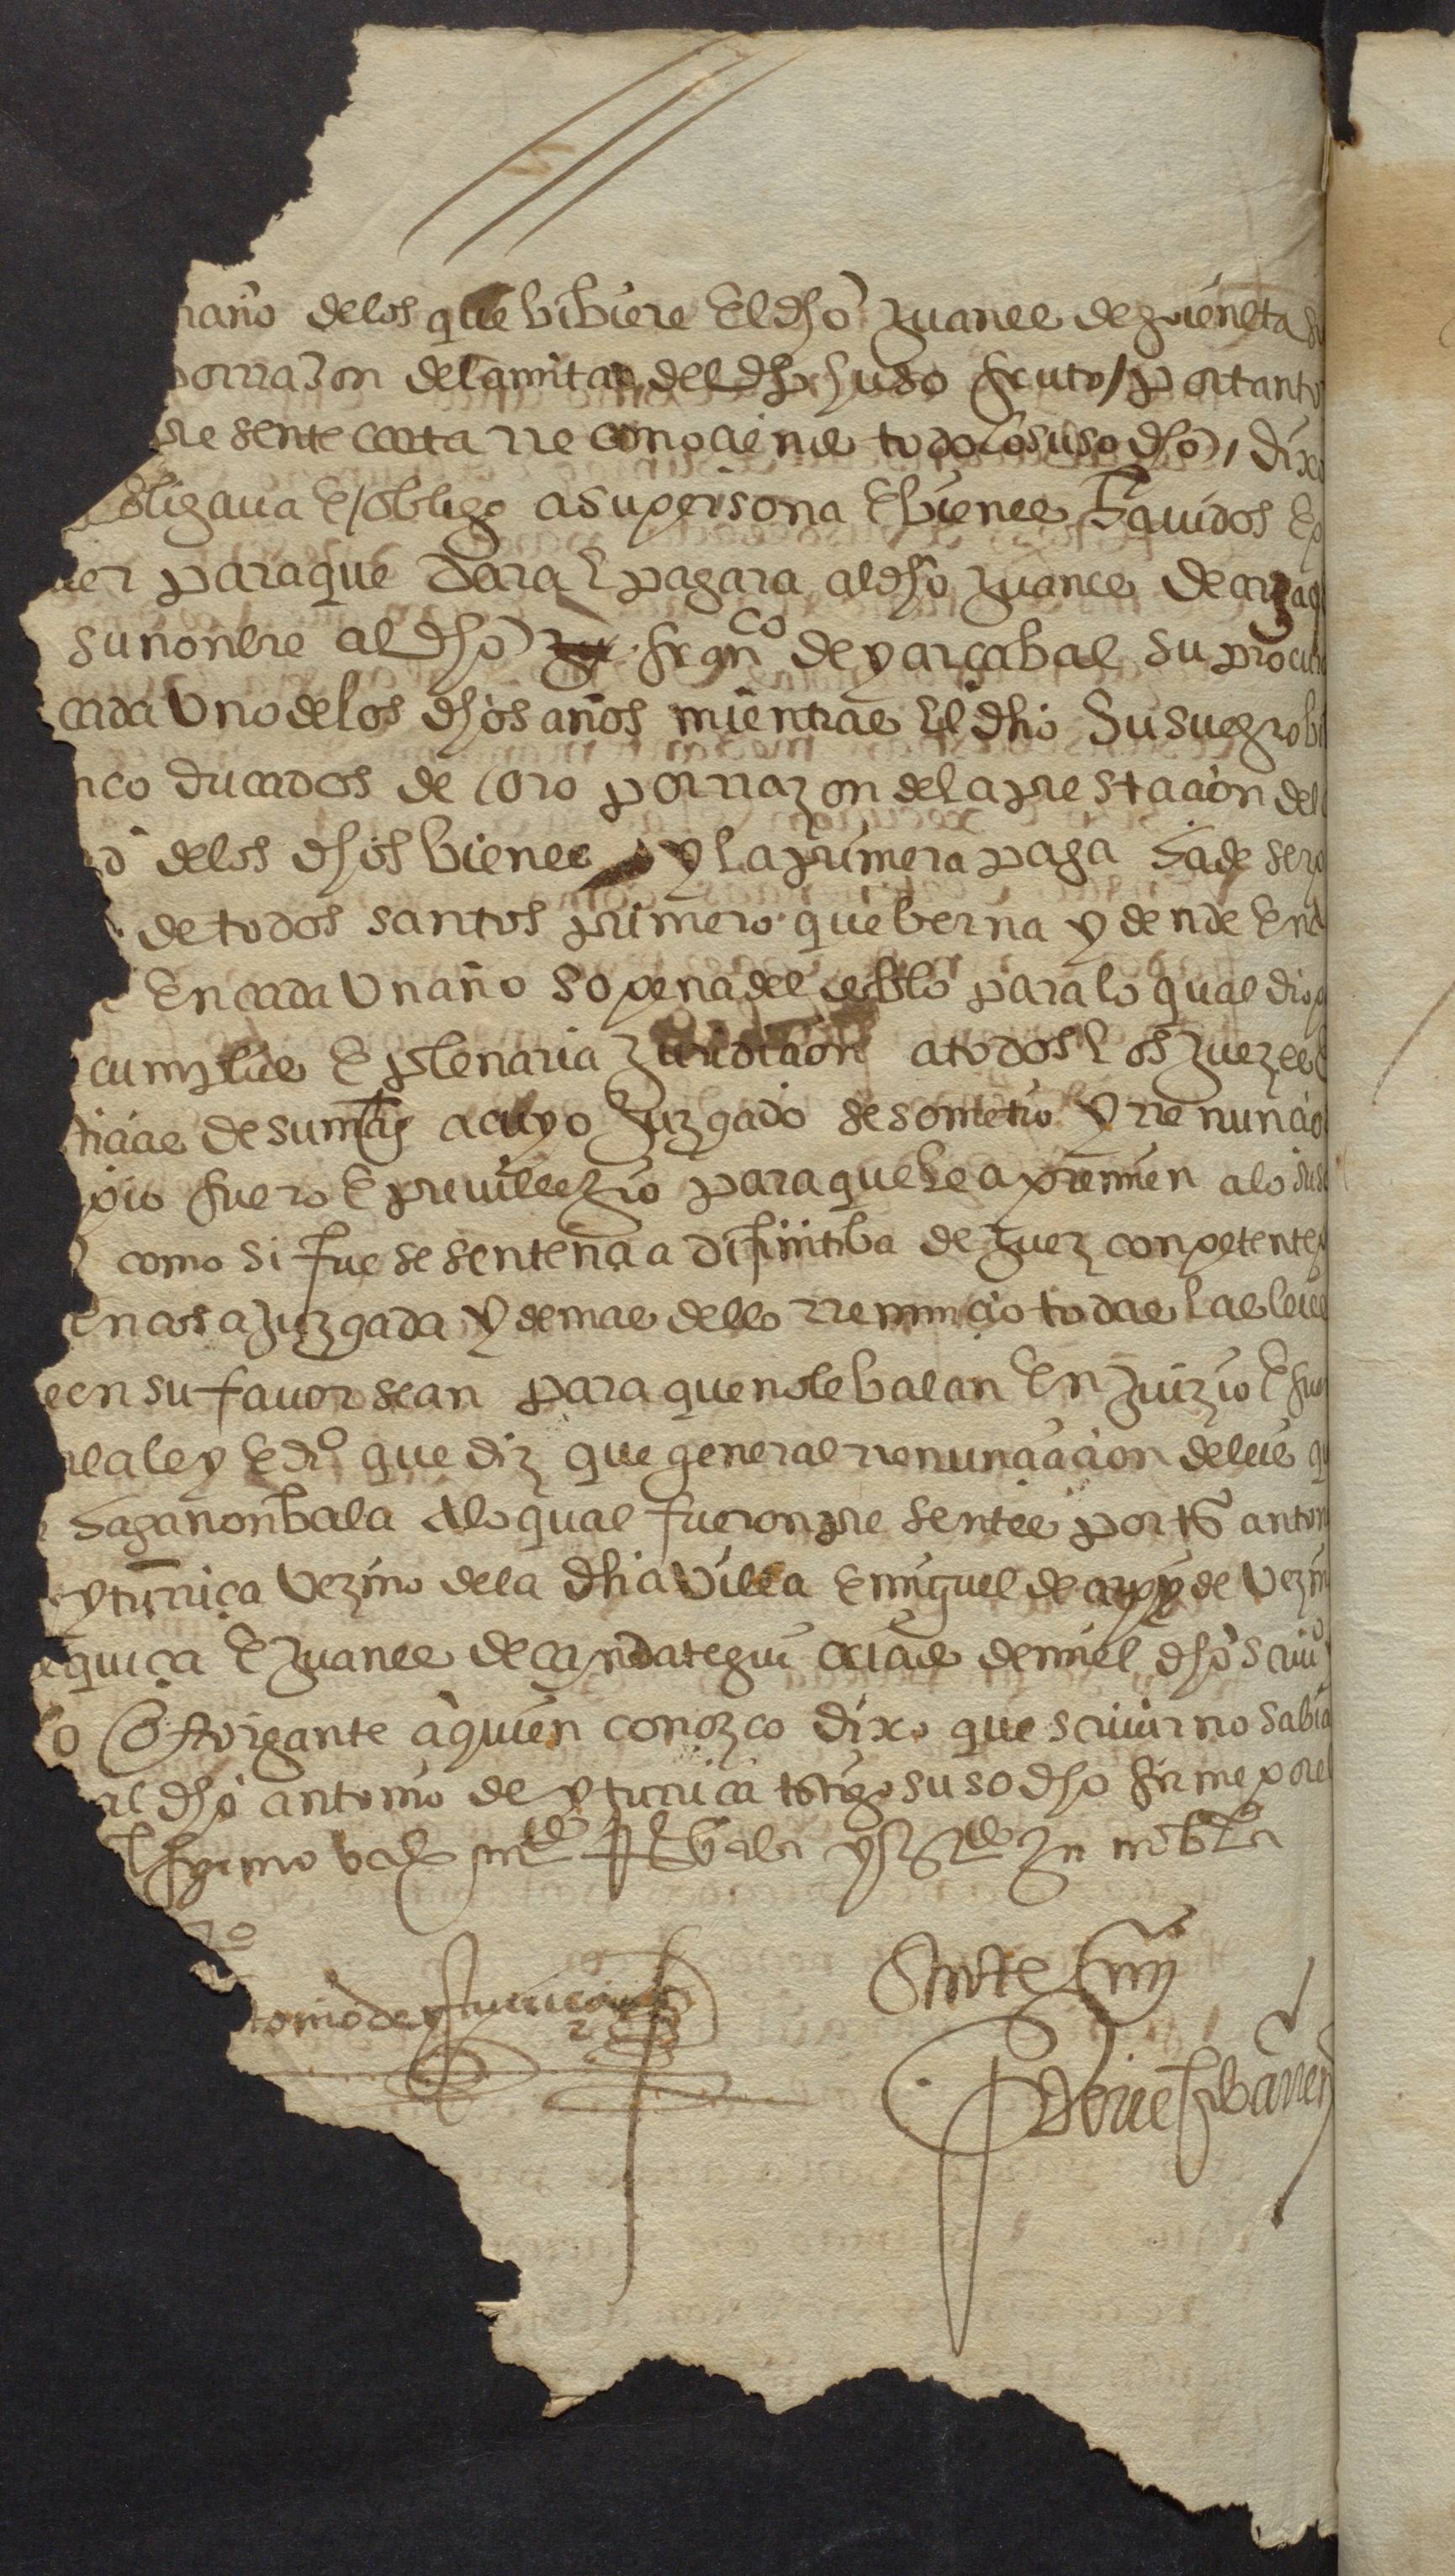 año delos que bibiere El dho Juanes de guereta su
por razon dela mitad del dho usofruto / por tanto
presente carta rreconociendo todo lo suso dho, dixo
obligava E obligo a su persona E bienes avidos E p
er para que dara E pagara al dho Juanes de arza
su nonbre al dho franco de yarcabal su procu
cada Uno de los dhos años mientras El dho Su suegro bi
nco ducados de oro por razon dela prestacion del
delos dhos bienes y la primera paga ha de ser
de todos santos primero que berna y dende En
En cada Un año so pena del doblo para lo qual dio
cumplida E plenaria Juridicion a todos los Juezes
ticias de su mag a cuyo Juzgado se sometio y rrenuncio
pio fuero E previllejio para que le apremien a lo suso
como si fuese sentencia difinitiba de Juez conpetente
En cosa Juzgada y demas dello rrenuncio todas las leies
en su favor sean para que no le balan En Juizio E fue
la ley E dro que diz que general rrenunciacion de leies q
haga non bala a lo qual fueron presentes por ts anton
yturriça Vezino dela dha villa E miguel de Vezin
quiça E Juanes de candategui criado de mi el dho scriuo
lo Otorgante a quien conozco dixo que scriuir no sabia
al dho antonio de yturriça testigo suso dho firme por el
firmo
tonio de yturriça
Ante my